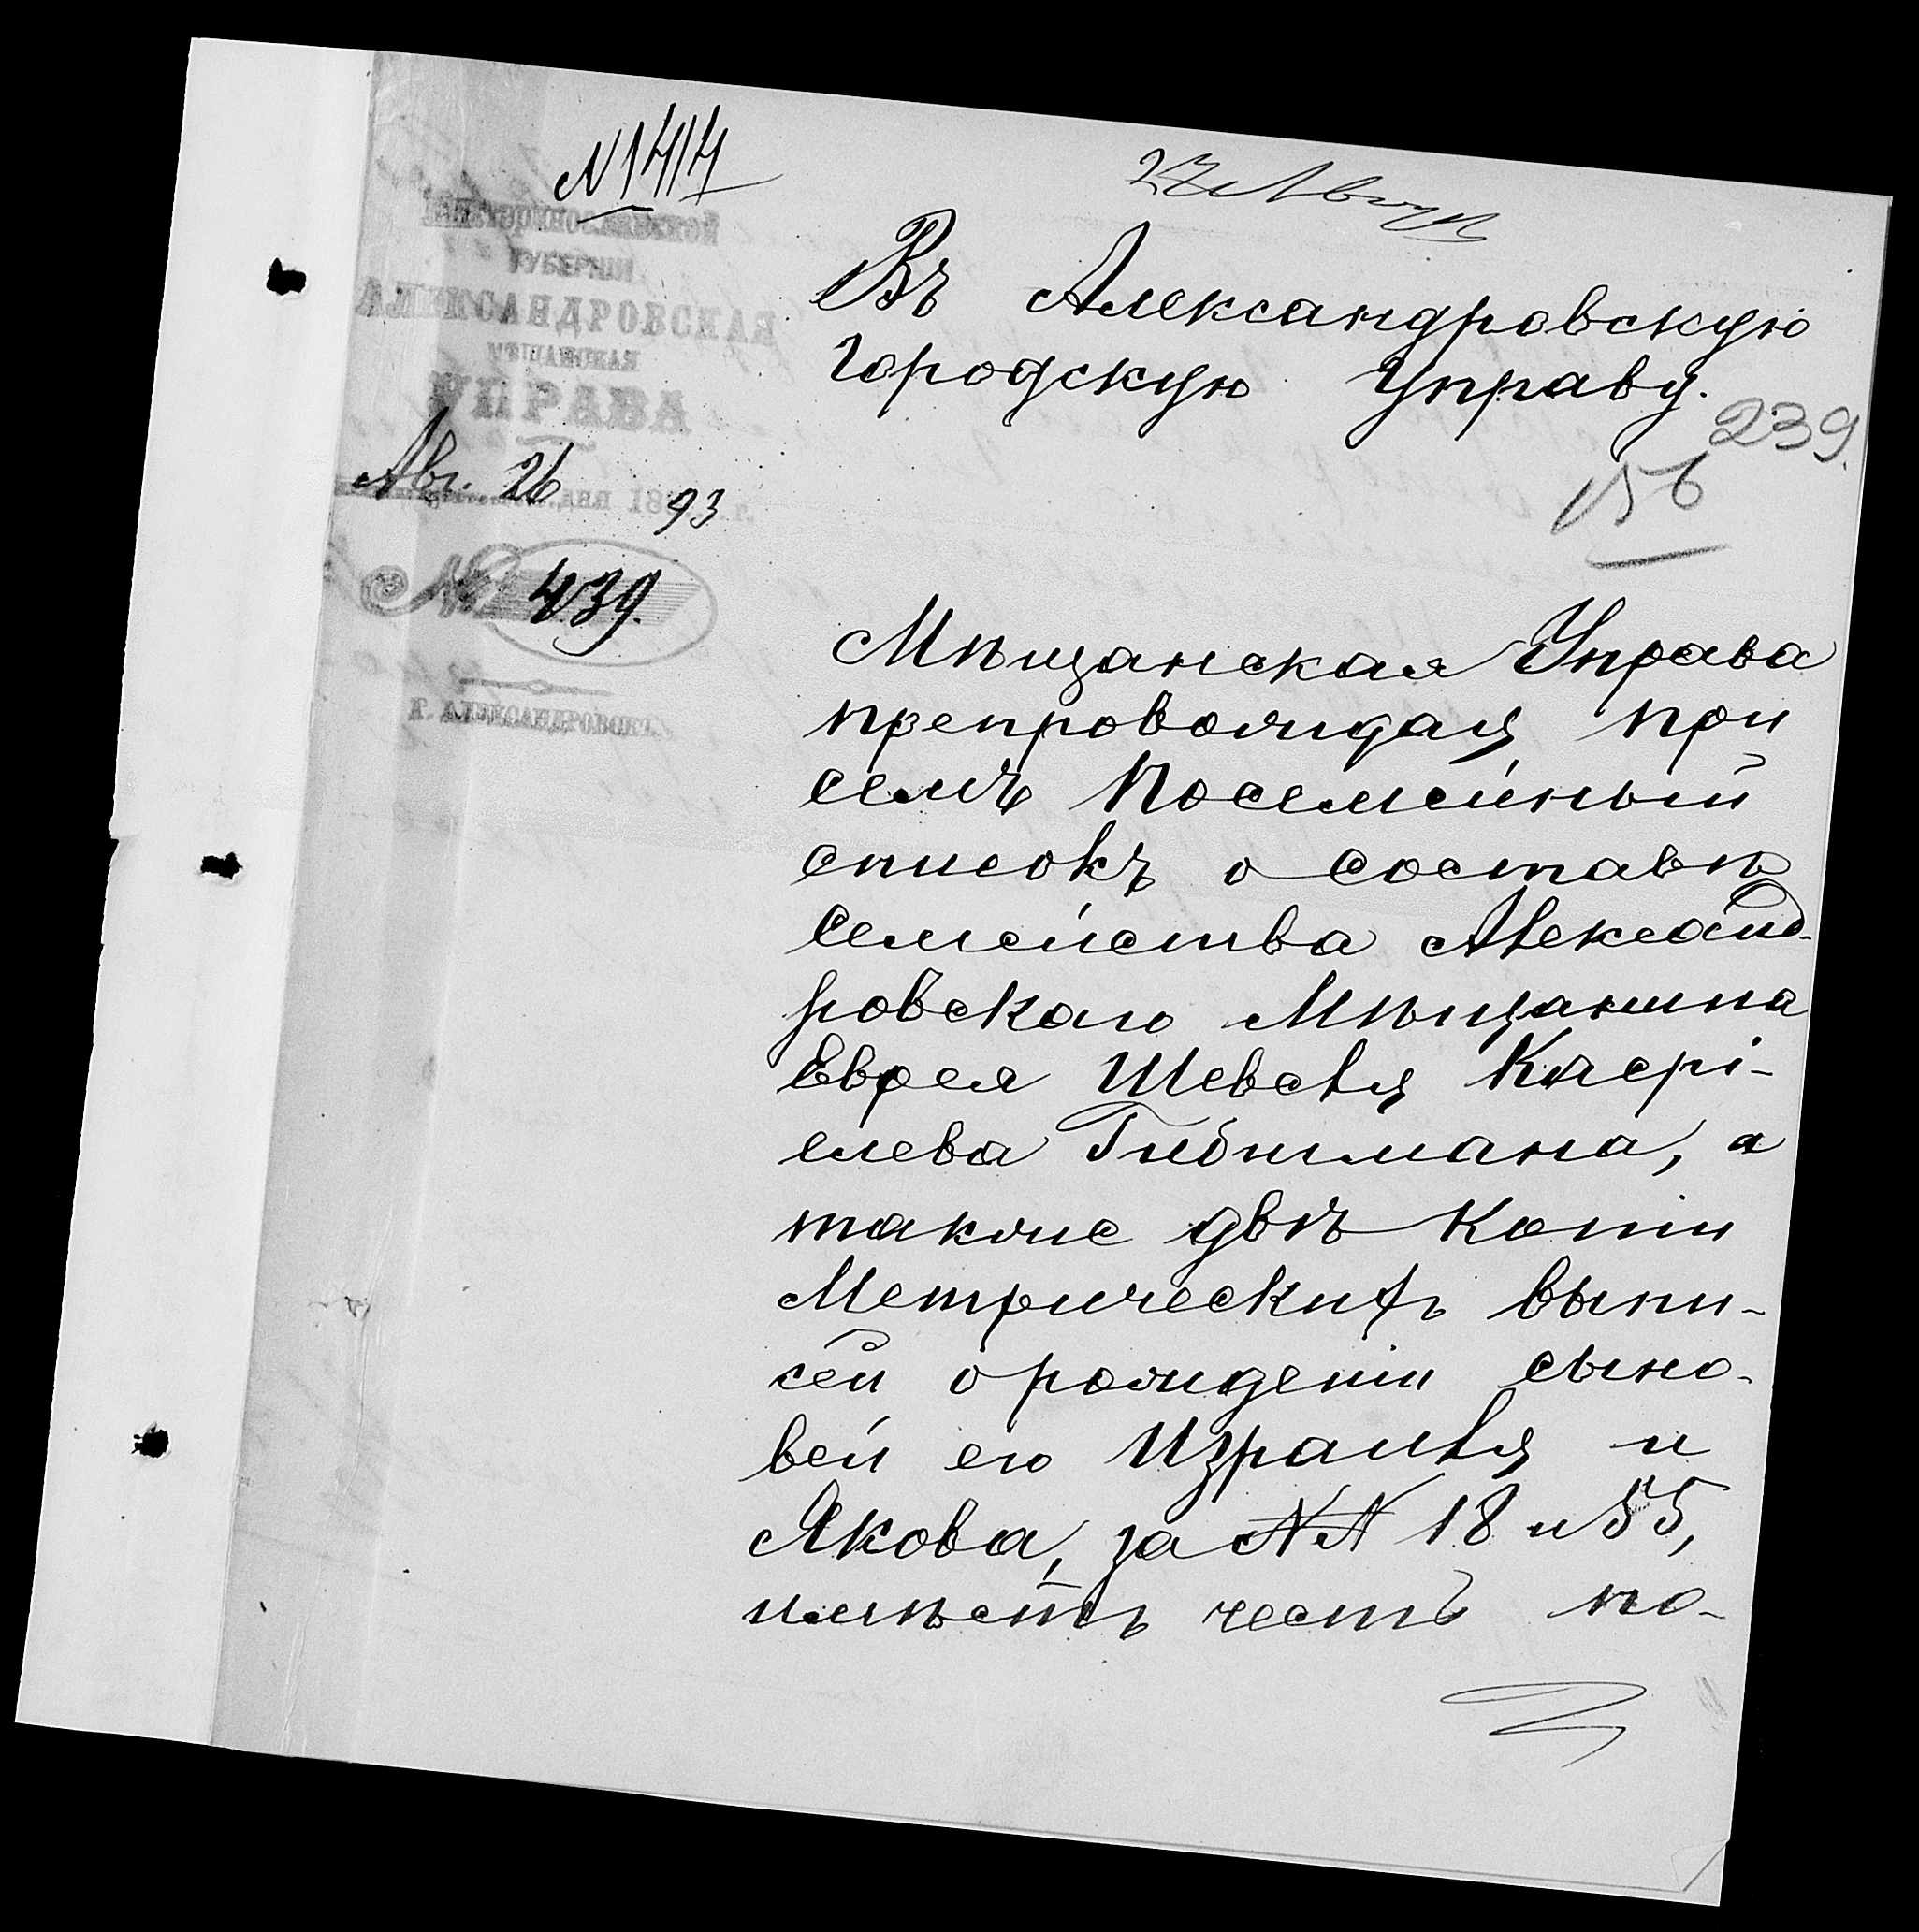 N 1414
27 Авгус
Екатеринославской
ГУБЕРНІИ
АЛЕКСАНДРОВСКАЯ
МѢЩАНСКАЯ
УПРАВА
Авг. 26 дня 1893 г.
№ 439.
Г. АЛЕКСАНДРОВСКЪ.
Въ Александровскую
Городскую Управу.
239.
156
Мѣщанская Управа
препровождая при
семъ Посемейный
списокъ о составѣ
Семейства Александ-
ровскаго Мѣщанина
Еврея Шевеля Касрі-
елева Гибшмана, а
также двѣ Копіи
Метрическихъ выпи-
сей о рожденіи сыно-
вей его Израиля и
Якова, за NN 18 и 55,
имѣетъ честь по-